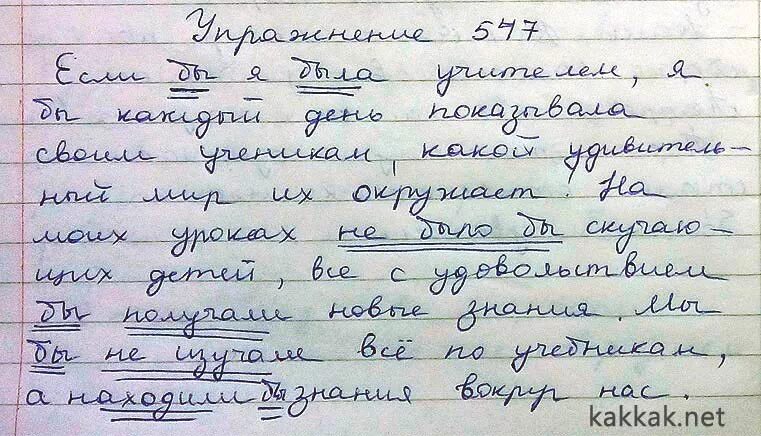 Упражнение 547
Если бы я была учителем, я
бы каждый день показывала
своим ученикам, какой удивитель-
ный мир их окружает! На
моих уроках не было бы скучаю-
щих детей, все с удовольствием
бы получали новые знания. Мы
бы не изучали всё по учебникам,
а находили бы знания вокруг нас.
kakkak.net